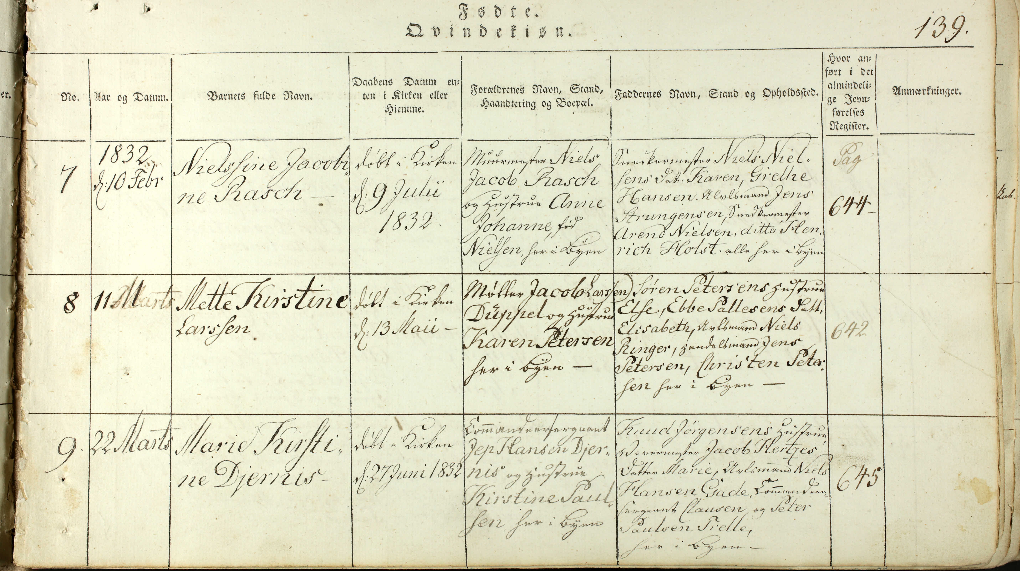 Fødte.
Qvindekiøn.
139.
No.
Aar og Datum.
Barnets fulde Navn.
Daabens Datum en-
ten i Kirken eller
Hiemme.
Forældrenes Navn, Stand,
Haandtering og Boepæl.
Faddernes Navn, Stand og Opholdssted.
Hvor an-
ført i det
almindeli-
ge Jevn-
førelses
Register.
Anmærkninger.
7
1832
d. 10 Febr
Nielssine Jacobi-
ne Rasch
døbt i Kirken
d. 9 Julii
1832.
Muurmester Niels
Jacob Rasch
og Hustrue Anne
Johanne fød
Nielsen, her i Byen
Sneedkermester Niels Niel-
sens Datt. Karen, Grethe
Hansen, Avlsmand Jens
Strungensen, Sneedkermester
Arend Nielsen, ditto Hen-
rich Holst. alle her i byen
Pag
644
8
11 Marts
Mette Kirstine
Larssen
døbt i Kirken
d. 13 Maii
Møller Jacob Larssen
Düppel og Hustrue
Karen Petersen
her i byen
Søren Petersens Hustrue
Else, Ebbe Pallesens Datt.
Elisabeth, Avlsmand Niels
Ringer, Handelsmand Jens
Petersen, Christen Peter-
sen her i byen
642
9.
22 Marts
Marie Kirsti-
ne Djernis
døbt i Kirken
d. 27 Juni 1832
Commandeersergeant
Jep Hansen Djer-
nis og Hustrue
Kirstine Paul-
sen her i byen
Knud Jørgensens Hustrue,
Jacob
Datter Marie, Avlsmand Niels
Hansen Gude,
sergeant Clausen, og Peter
Paulsen
her i byen
645